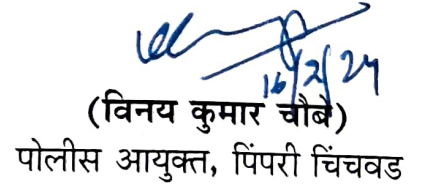 16/2/24
(विनय कुमार चौबे)
पोलीस आयुक्त, पिंपरी चिंचवड